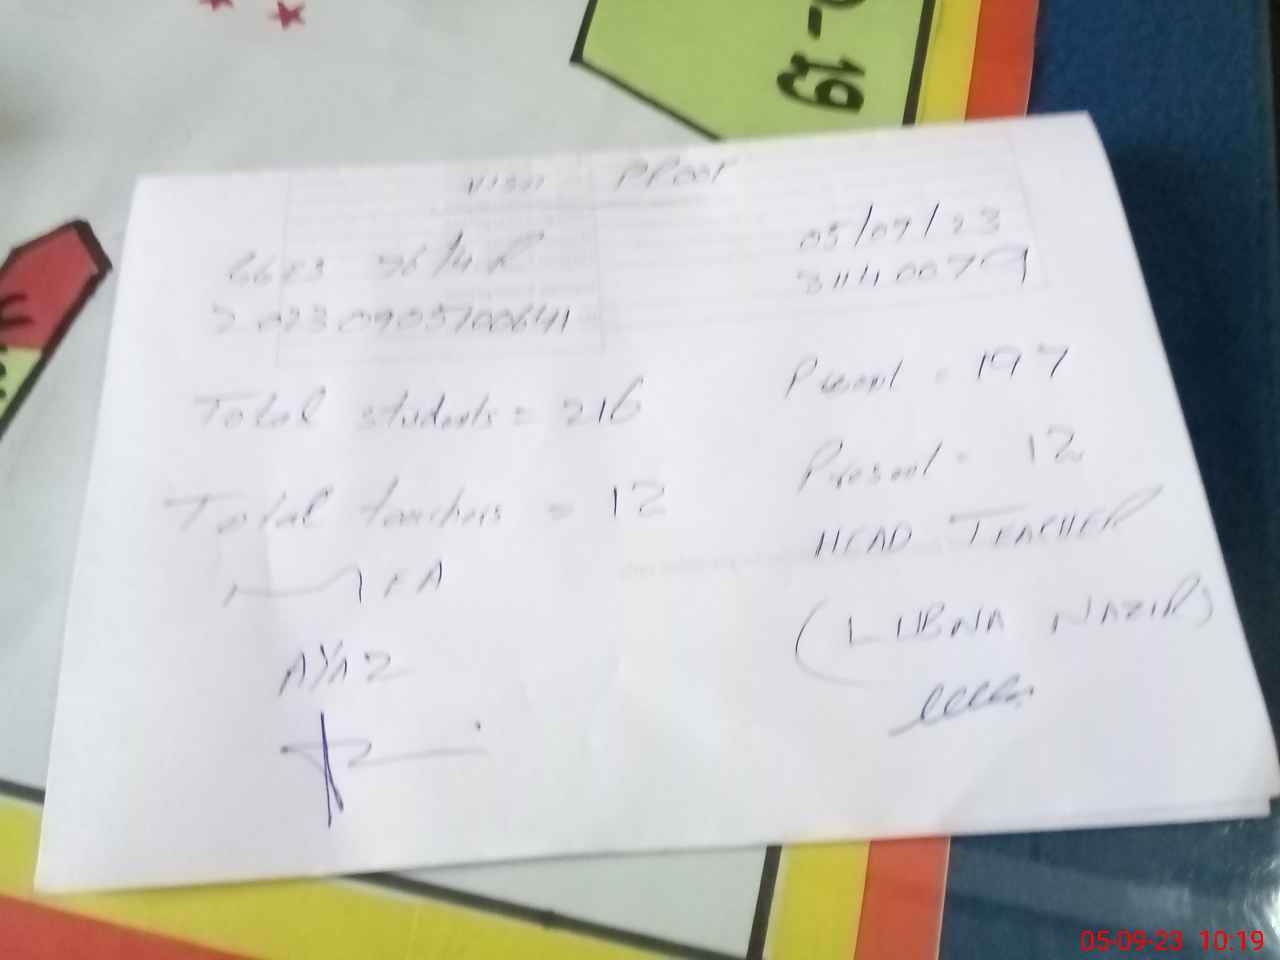 - 19
VISIT PROOF
05/09/23
36/4R
31140079
20230905100641
Total students = 216
Present = 197
Total teachers = 12
Present = 12
HEAD TEACHER
MEA
(LUBNA NAZIR)
AYAZ
05-09-23 10:19